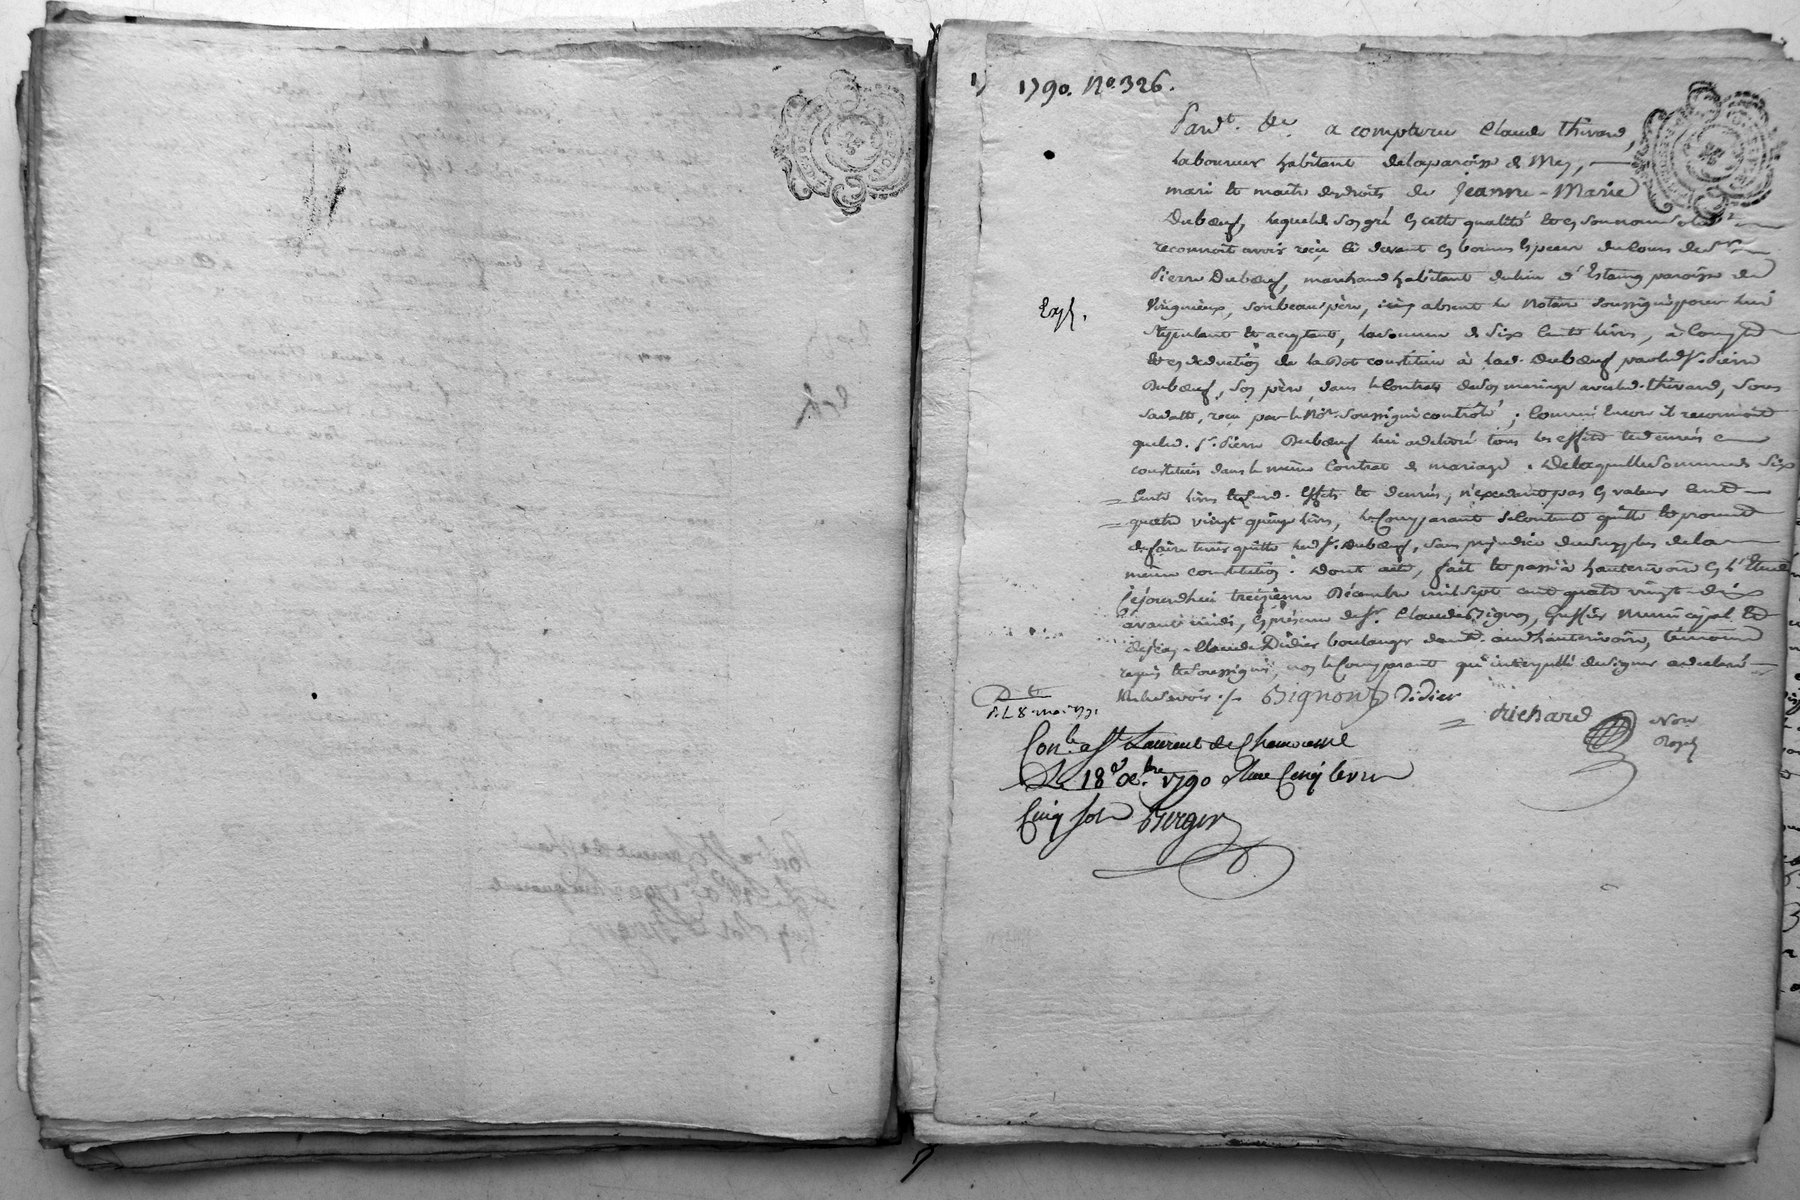 1790. No. 326.
Pardt. &c. a comparu Claude Thivard,
laboureur habitant de la paroisse de Mey,
mari et maitre des droits de Jeanne-Marie
Duboeuf, lequel de son gré en cette qualité et en son nom
reconnoit avoir reçu ci devant en bonnes espèces du cours de Sr.
Pierre Duboeuf, marchand habitant du lieu d'Estaing paroisse de
Virignieux, son beau père, icy absent le Notaire soussigné pour lui
stipulant et acceptant, la somme de six cents livres, à compte
et en déduction de la Dot constituée à lad. Duboeuf par led. Sr. Pierre
Duboeuf, son père, dans le Contrat de son mariage avec led. Thivard, sous
sa datte, reçu par le Nore. soussigné controlé; Comme encore il reconnoit
que led. Sr. Pierre Duboeuf lui a délivré tous les effets et denrées
constitués dans le même Contrat de mariage. De laquelle somme de six
Cents livres et susd. effets et denrées, n'excedant pas en valeur cent
quatre vingt quinze livres, le Comparant se contente quitte et promet
de faire tenir quitte led. Sr. Duboeuf, sans préjudice du surplus de la
même constitution. Dont acte, fait et passé à hauterivoire en l'Etude
cejourdhui treizieme Décembre mil sept cent quatre vingt-dix
avant midi, en présence de Sr. Claude Bignon, Greffier Municipal et
de Claude Didier boulanger demt. aud. hauterivoire, témoins
requis et soussignés, non le Comparant qui interpellé de signer a déclaré
ne le savoir ./.
Bignon Didier
Richard
Nore
Royal
Exp.
8. mai 1791
Conle. a St Laurent de Chamousset
Le 18 Xbre 1790 Reçu Cinq livres
Cinq sols Berger